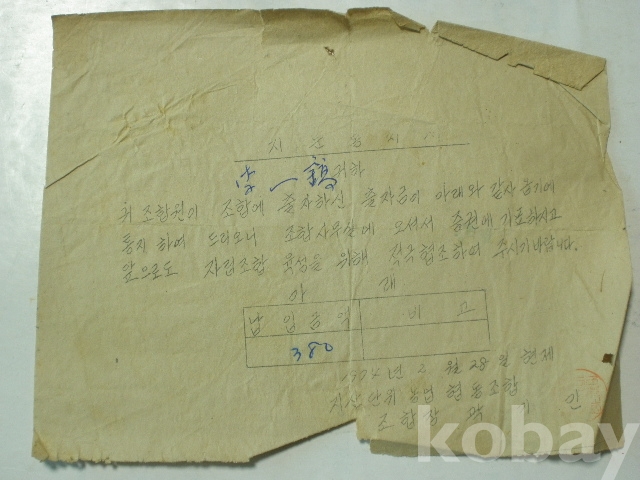 一鶴 귀하
귀 조합원이 조합에 출자하신 출자금이 아래와 같사옵기에
통지 하여 드리오니 조합사무실에 오셔서 증권에 기표하시고
앞으로도 자립조합 육성을 위해 적극협조하여 주시기바랍니다.
아 래
납 입 금 액 비 고
380
1974년 2월 28일 현재
단위 농업 협동조합
조합장 박 인
kobay